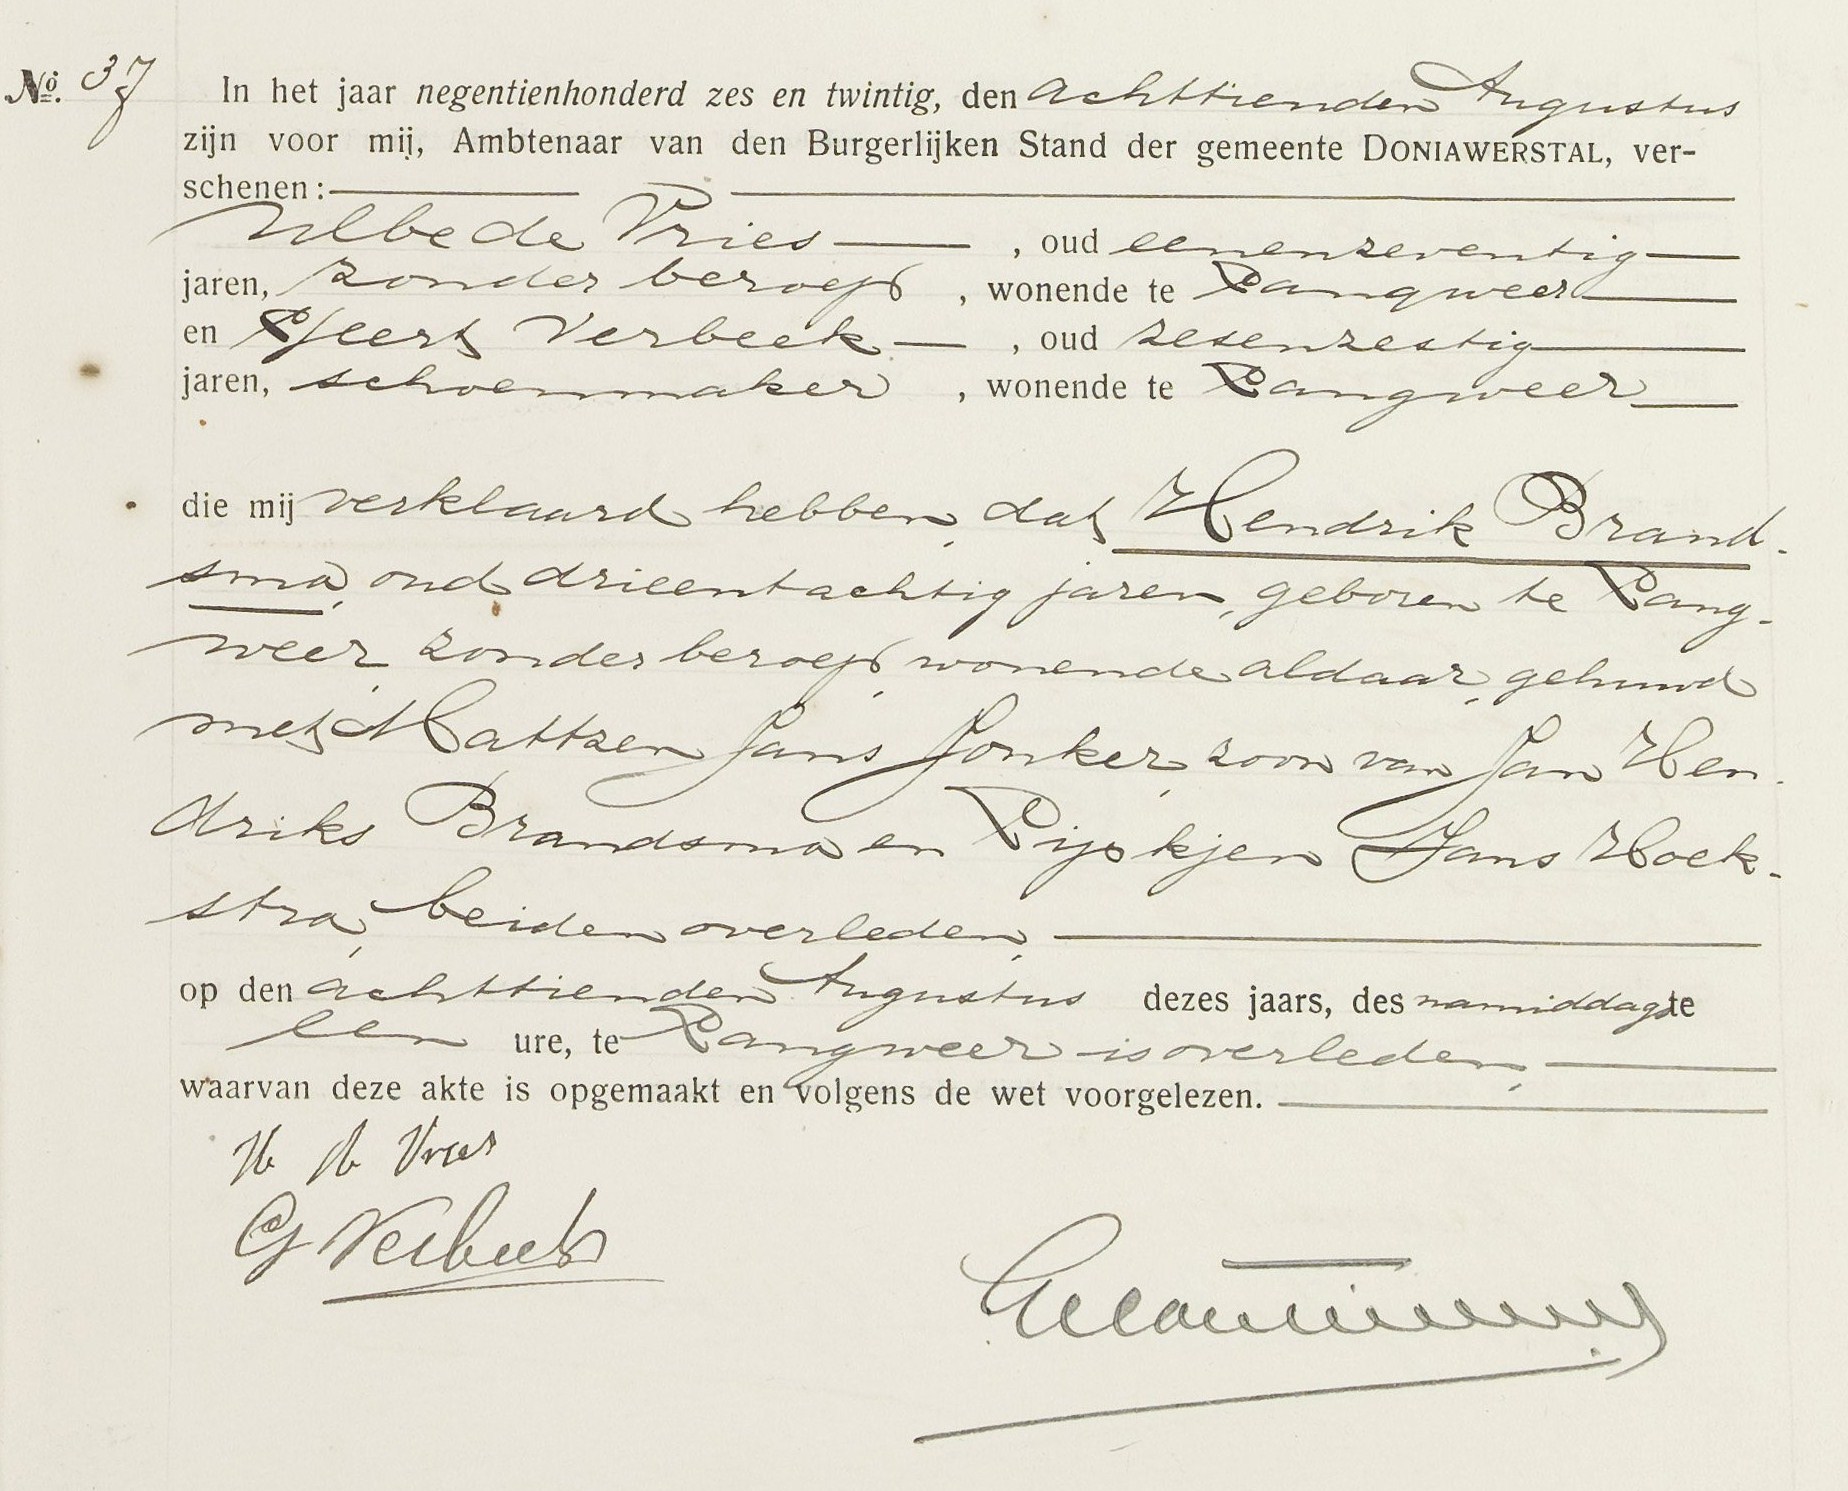 No. 37
In het jaar negentienhonderd zes en twintig, den achttienden Augustus
zijn voor mij, Ambtenaar van den Burgerlijken Stand der gemeente DONIAWERSTAL, ver-
schenen:
Ulbe de Vries , oud eenenzeventig
jaren, zonder beroep , wonende te Langweer
en Geert Verbeek , oud zesenzestig
jaren, schoenmaker , wonende te Langweer
die mij verklaard hebben, dat Hendrik Brand-
sma, oud drieentachtig jaren, geboren te Lang-
weer, zonder beroep, wonende aldaar, gehuwd
met Mattzen Jans Jonker, zoon van Jan Hen-
driks Brandsma en Lijskjen Hans Hoek-
stra, beiden overleden,
op den achttienden Augustus dezes jaars, des namiddags te
een ure, te Langweer is overleden,
waarvan deze akte is opgemaakt en volgens de wet voorgelezen.
Vries
G Verbeek